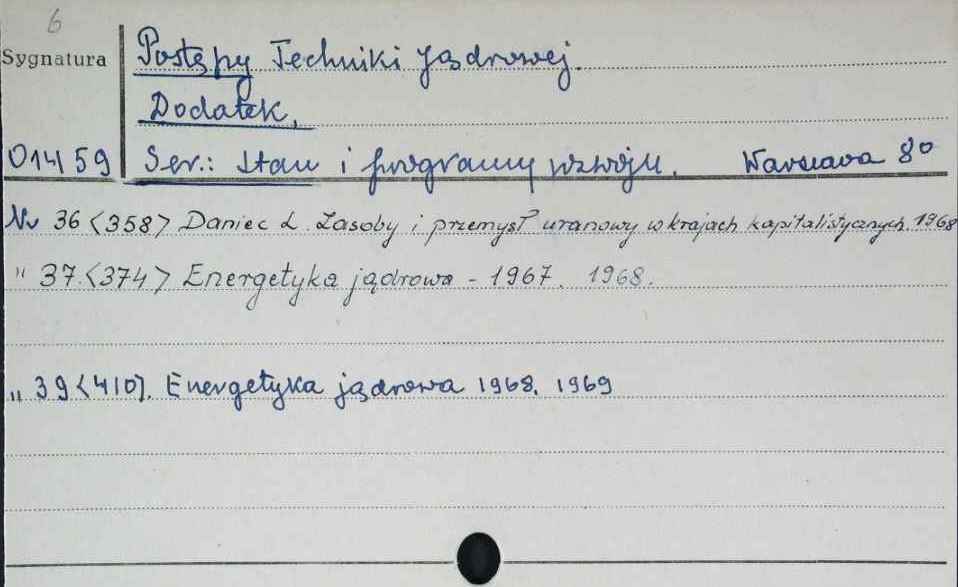 6
Sygnatura
Postępy Techniki Jądrowej.
Dodatek.
01459 Ser.: Stan i programy rozwoju. Warszawa 8°
Nr 36 <358> Daniec L. Zasoby i przemysł uranowy w krajach kapitalistycznych. 1968
" 37. <374> Energetyka jądrowa - 1967. 1968.
" 39 <410>. Energetyka jądrowa 1968. 1969